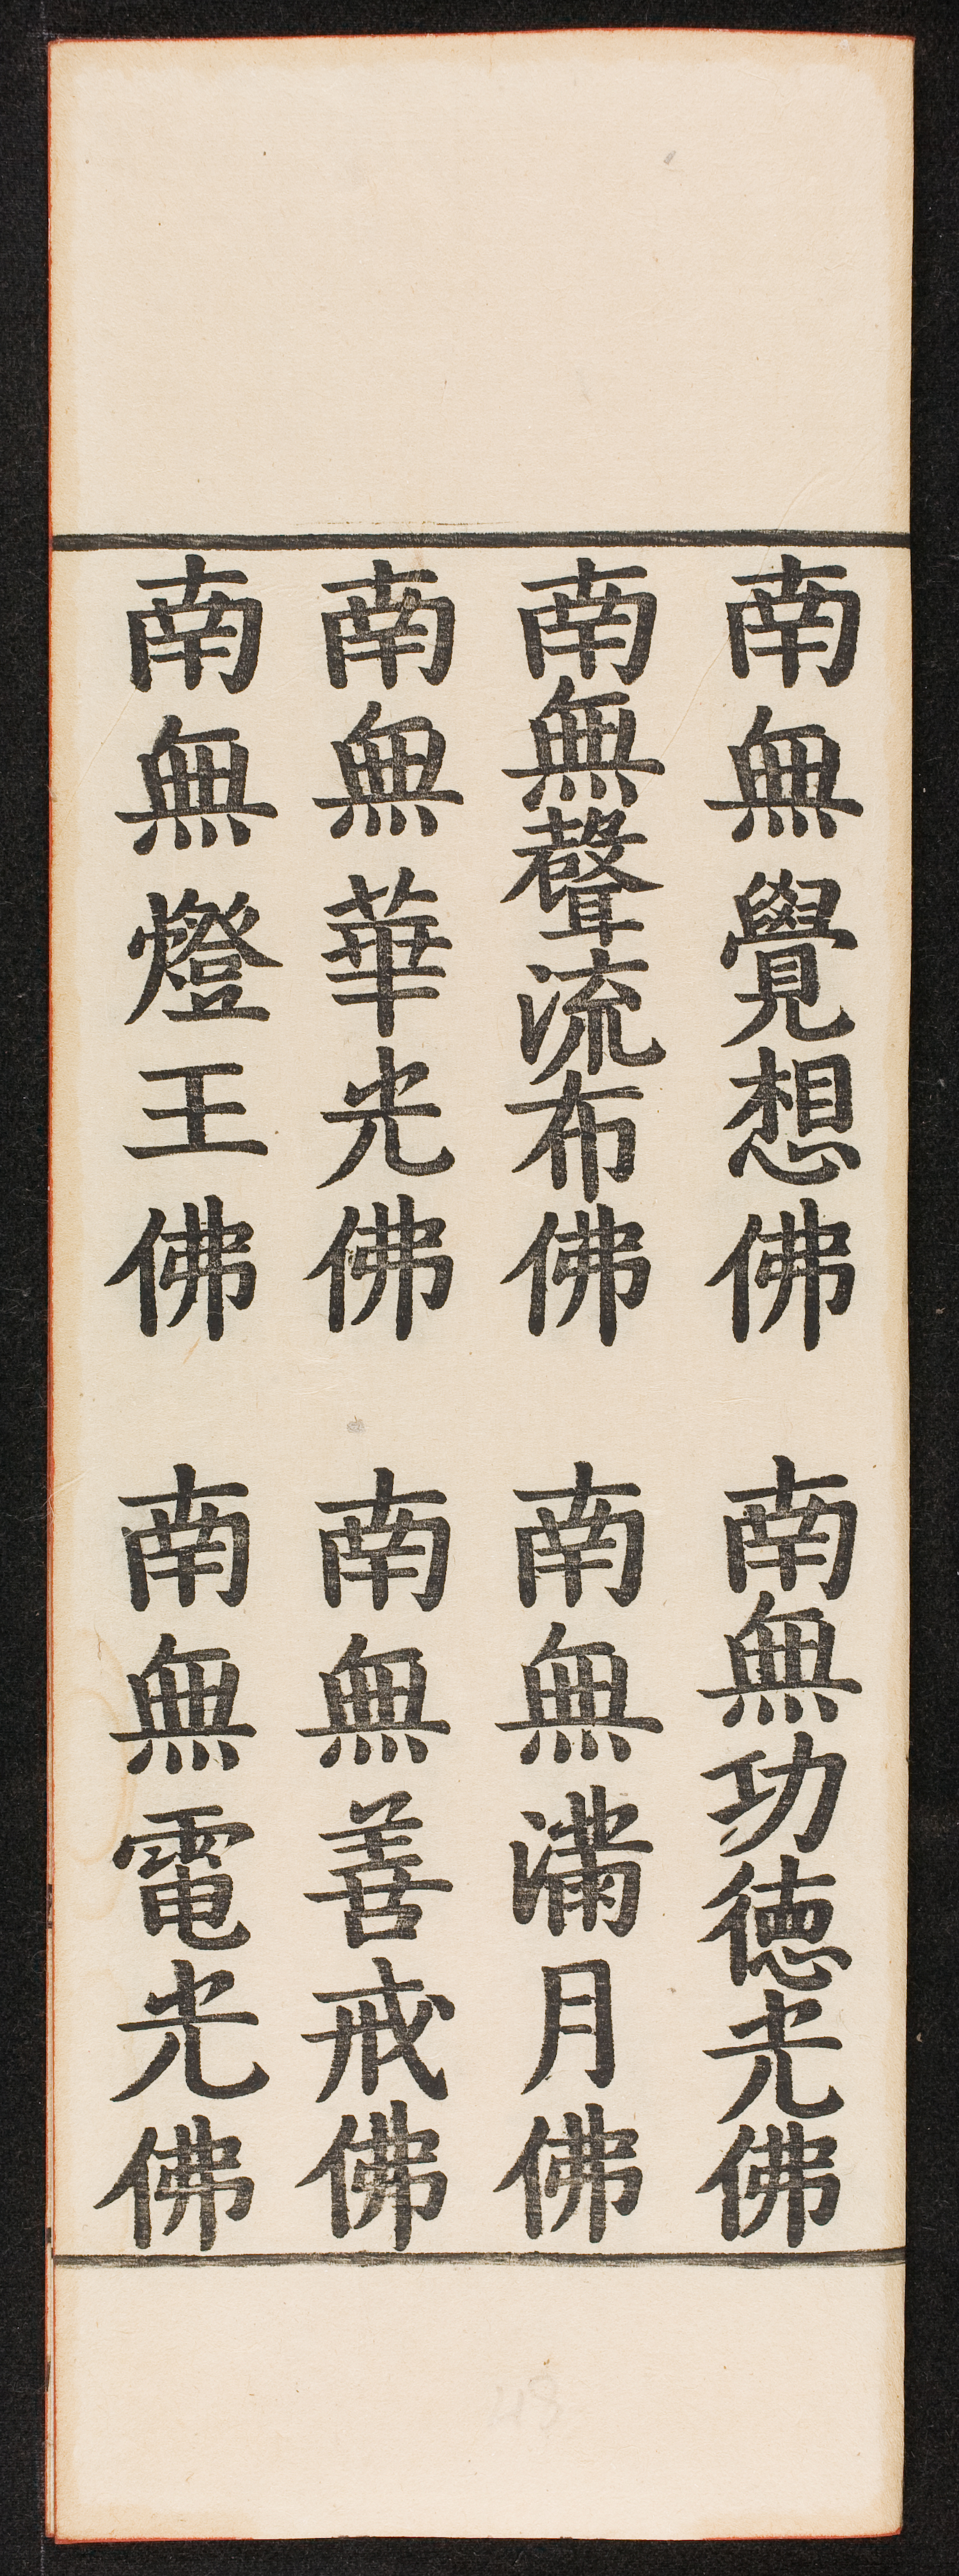 南無覺想佛 南無功德光佛
南無聲流布佛 南無滿月佛
南無華光佛 南無善戒佛
南無燈王佛 南無電光佛